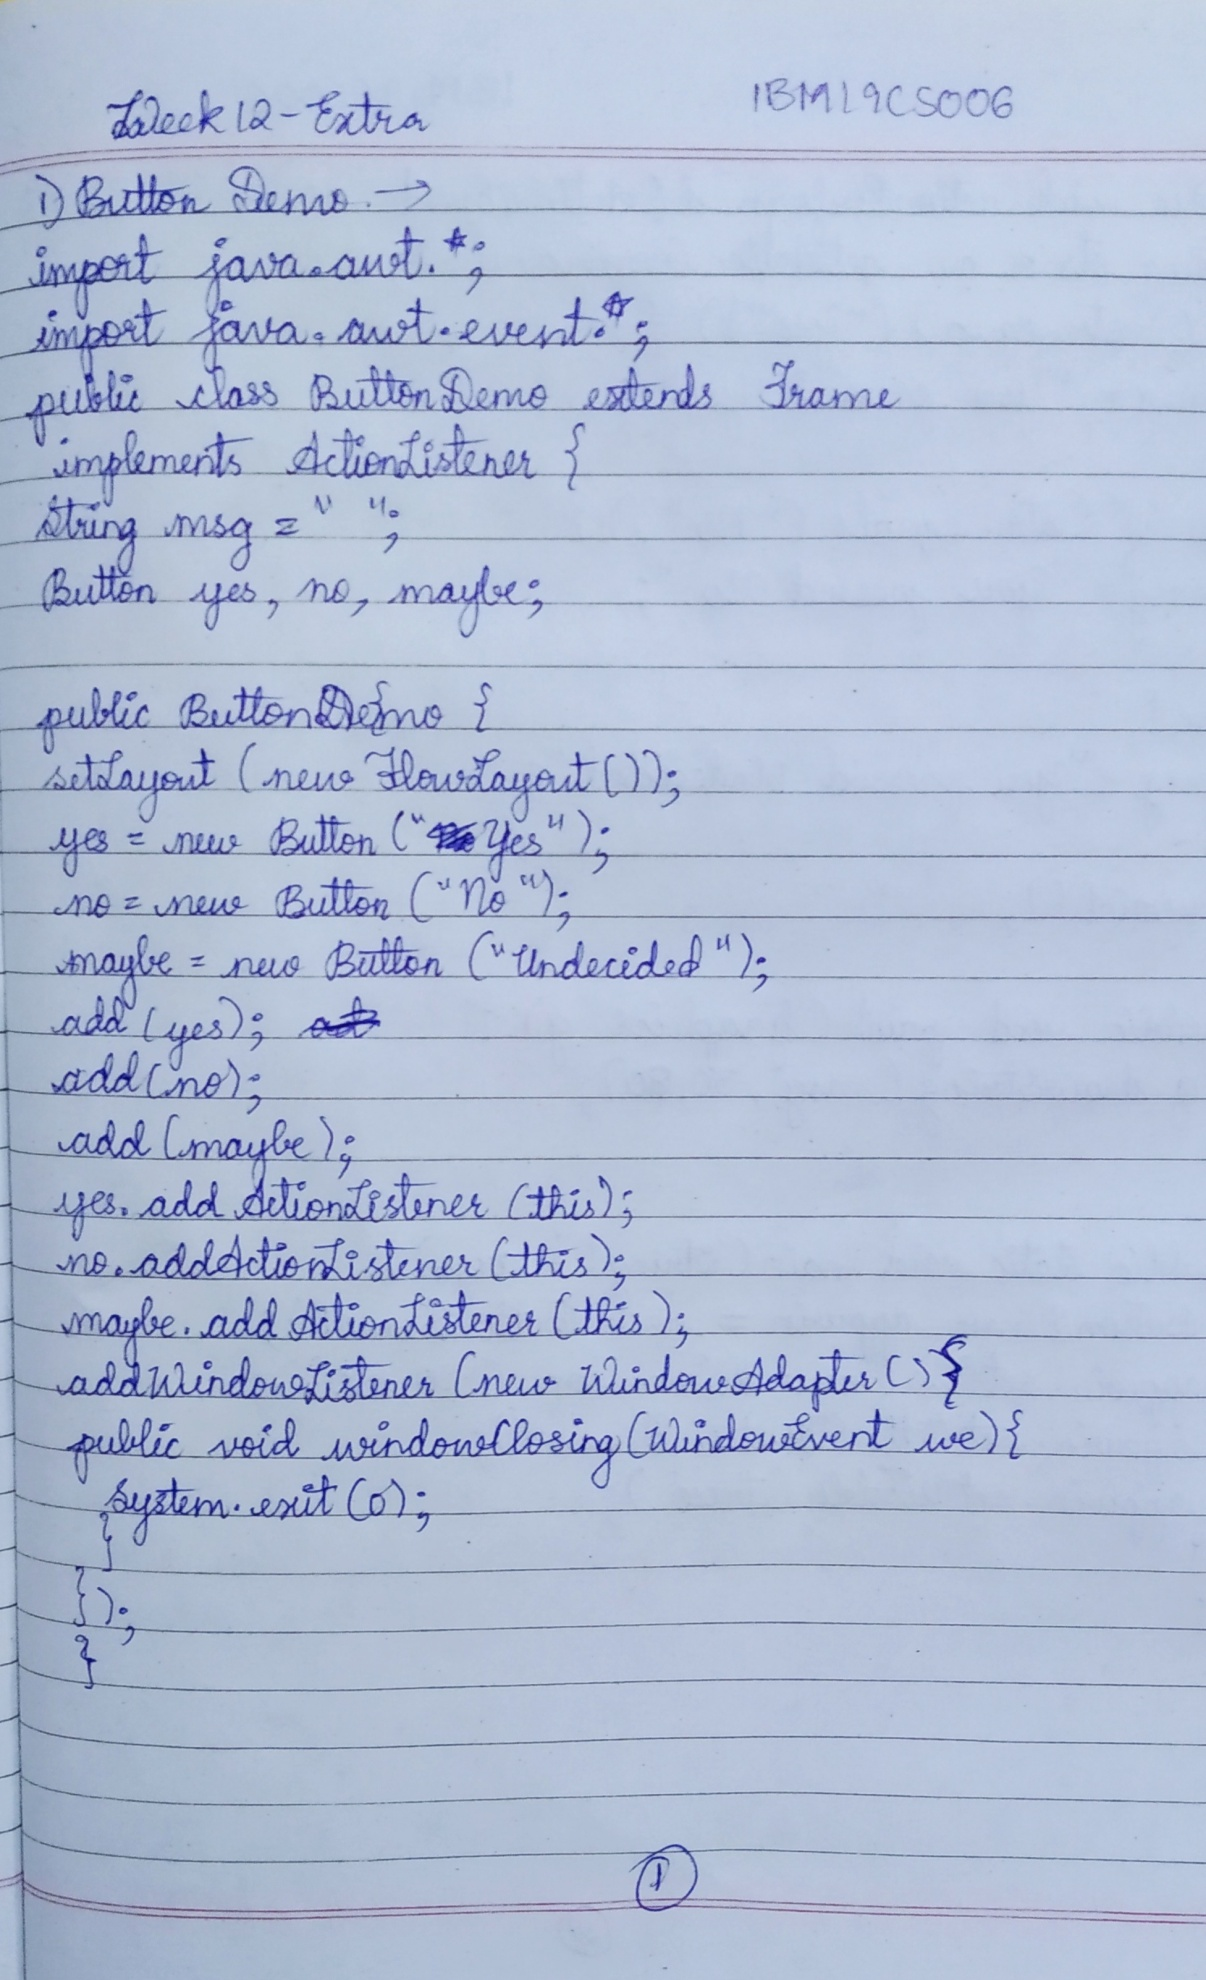 Week 12 - Extra
1BM19CS006
1) Button Demo. →
import java.awt.*;
import java.awt.event.*;
public class ButtonDemo extends Frame
implements ActionListener {
String msg = " ";
Button yes, no, maybe;
public ButtonDemo {
setLayout (new FlowLayout ());
yes = new Button ("Yes");
no = new Button ("No");
maybe = new Button ("Undecided");
add (yes);
add (no);
add (maybe);
yes. add ActionListener (this);
no. addActionListener (this);
maybe. add ActionListener (this);
addWindowListener (new WindowAdapter () {
public void windowClosing (WindowEvent we) {
System. exit (0);
}
});
}
1